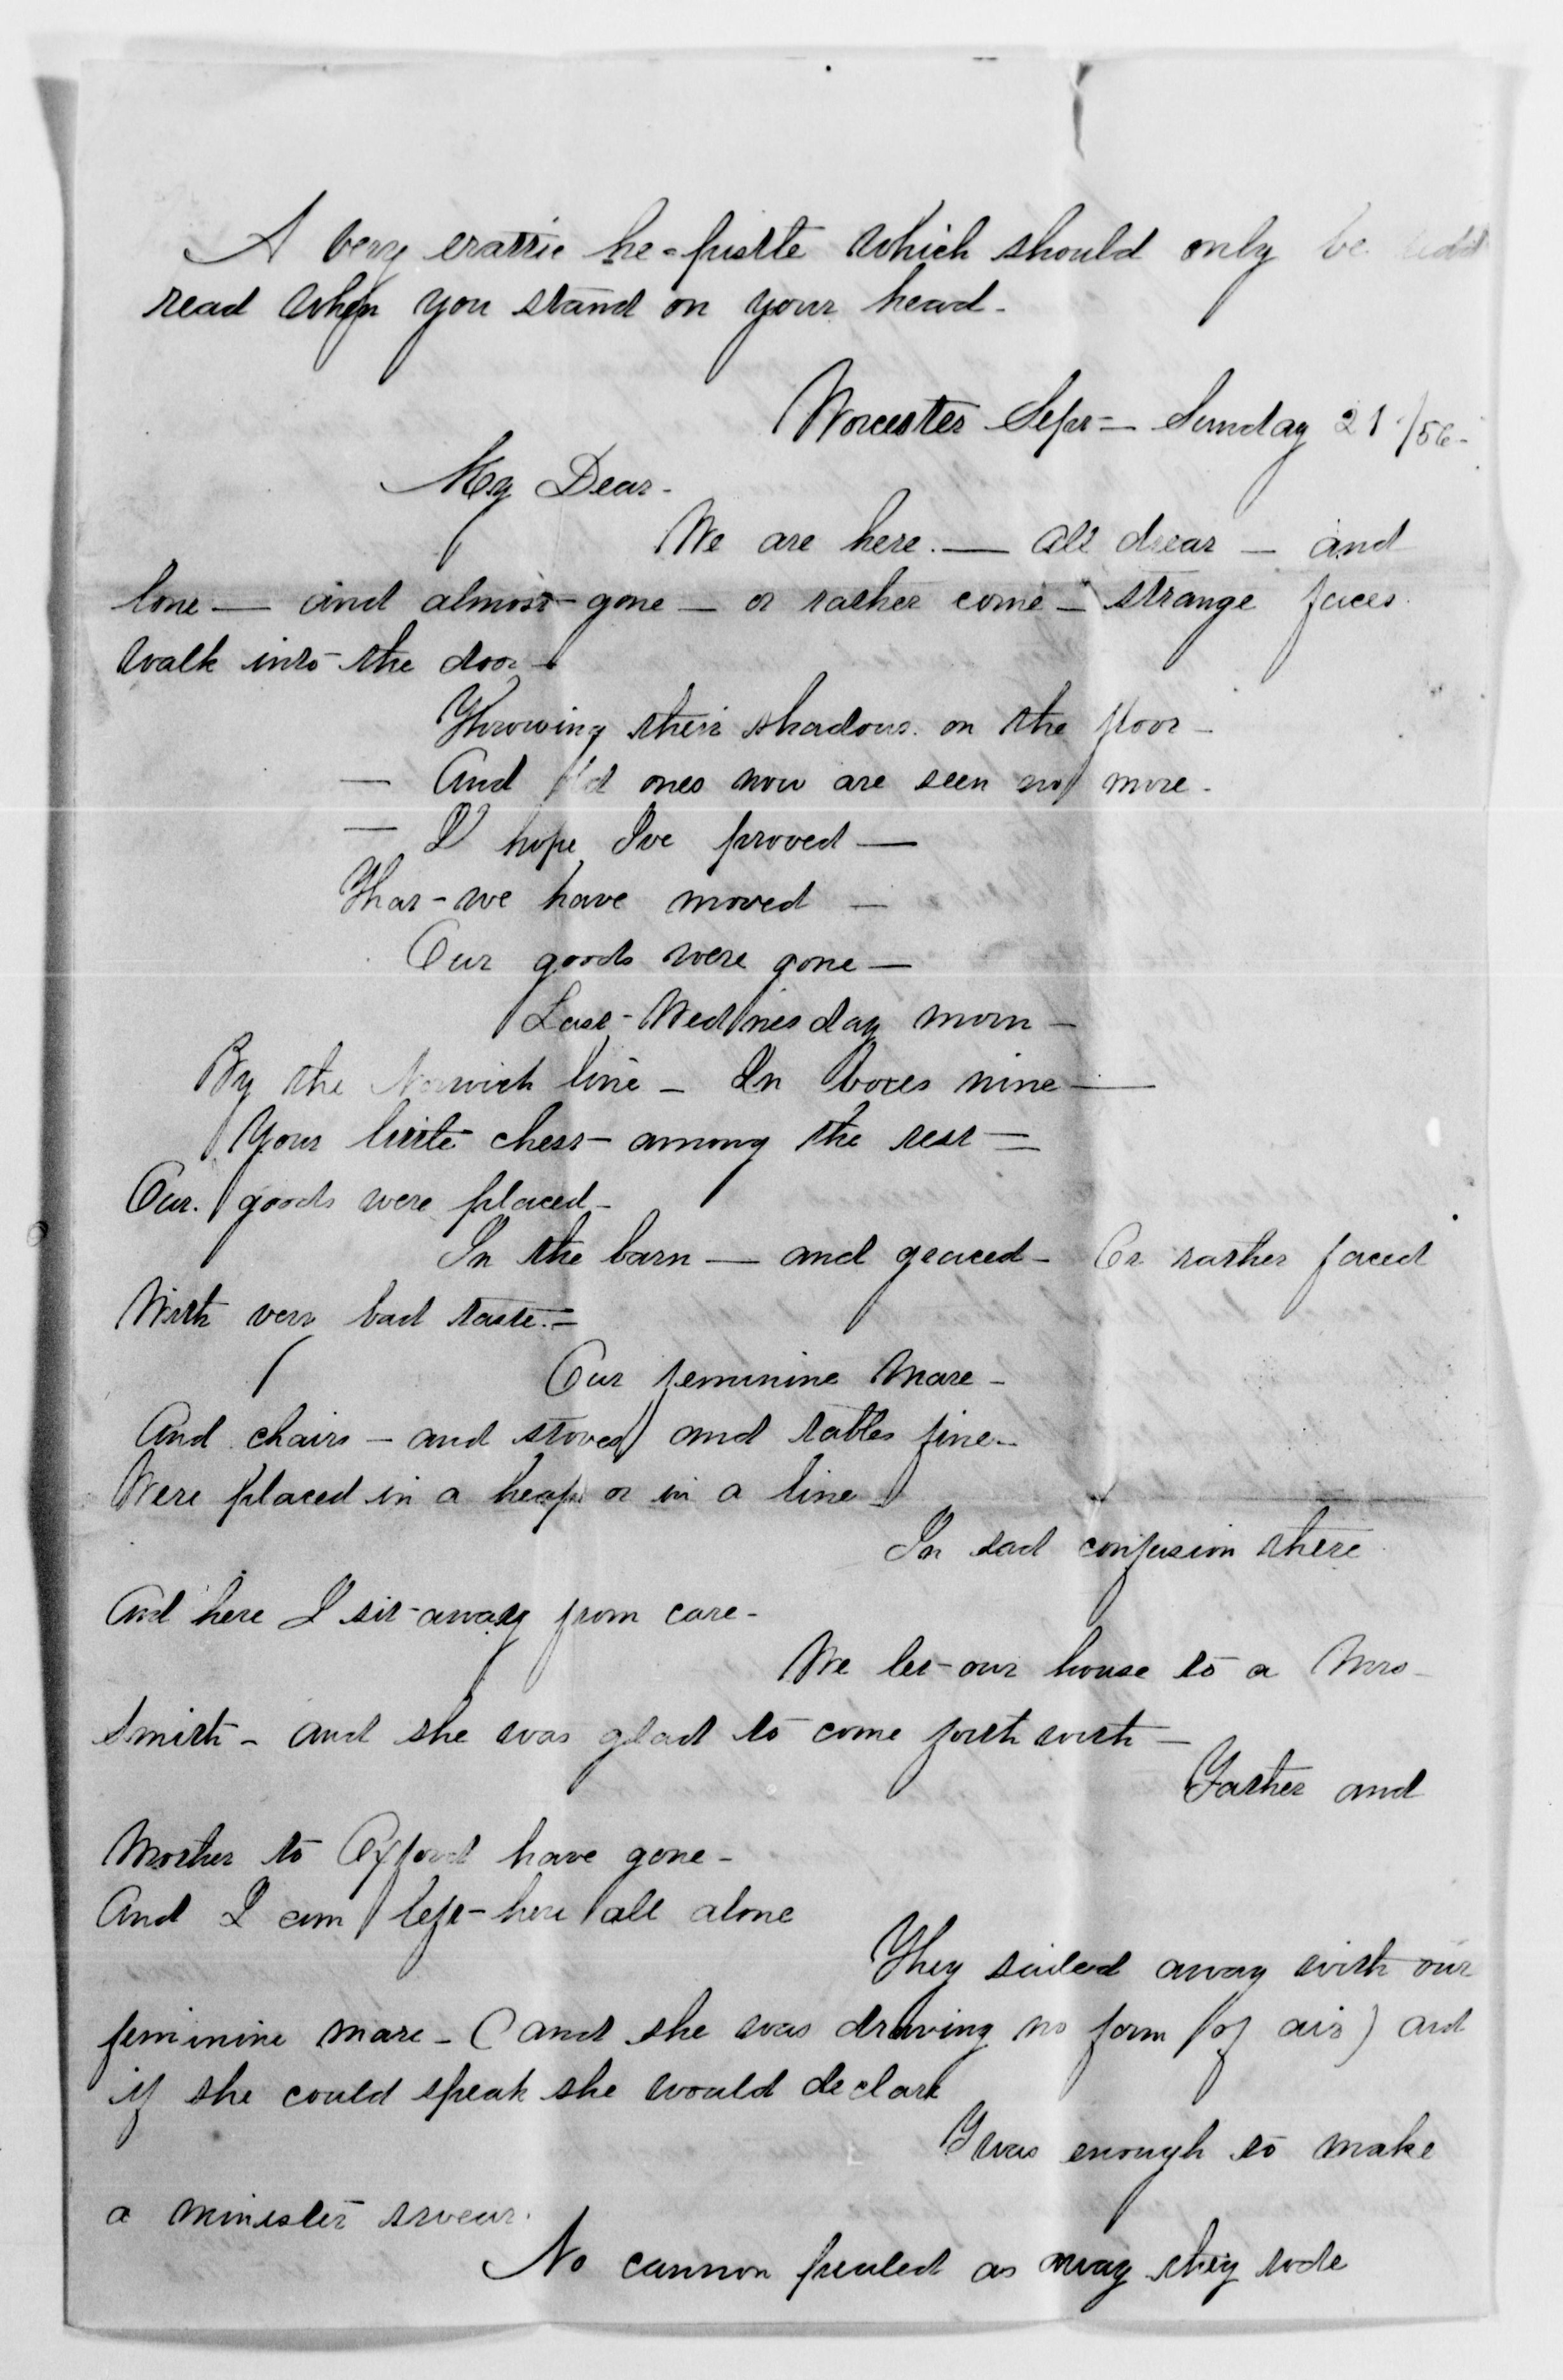 A very erratic he=pistle which should only be
read when you stand on your head-
Worcester Sept= Sunday 21/56-
My Dear-
We are here.— All drear — and
lone — and almost gone — or rather come — strange faces
walk into the door —
Throwing their shadows on the floor —
— And old ones now are seen no more -
— I hope Ive proved —
That we have moved —
Our goods were gone —
Last Wednesday morn —
By the Norwich line — In boxes nine —
Your little chest among the rest =
Our goods were placed -
In the barn — and graced - Or rather faced
With very bad taste.=
Our feminine Mare -
And chairs — and stoves and tables fine -
Were placed in a heap or in a line -
In sad confusion there
And here I sit away from care -
We let our house to a Mrs
Smith - and she was glad to come forth with —
Father and
Mother to Oxford have gone -
And I am left here all alone
They sailed away with our
feminine mare - (and she was drawing no form of air) and
if she could speak she would declare
Twas enough to make
a minister swear.
No cannon pealed as away they rode